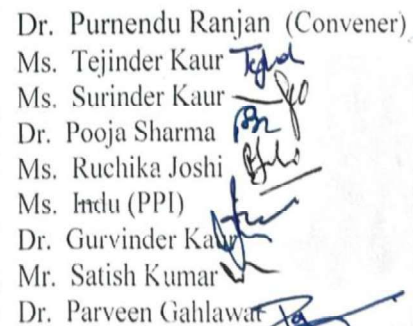 Dr. Purnendu Ranjan (Convener)
Ms. Tejinder Kaur
Ms. Surinder Kaur
Dr. Pooja Sharma
Ms. Ruchika Joshi
Ms. Indu (PPI)
Dr. Gurvinder Kaur
Mr. Satish Kumar
Dr. Parveen Gahlawat